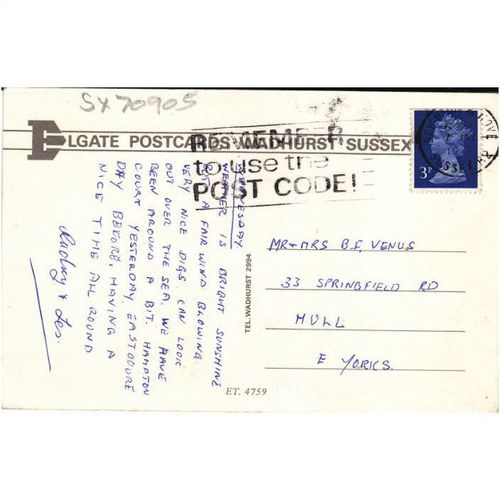 SX70905
ELGATE POSTCARDS WADHURST SUSSEX
REMEMBER
to use the
POST CODE!
3P
WEDNESDAY
WEATHER IS BRIGHT SUNSHINE
BUT A FAIR WIND BLOWING.
VERY NICE DIGS. CAN LOOK
OUT OVER THE SEA. WE HAVE
BEEN AROUND A BIT. HAMPTON
COURT YESTERDAY, EASTBOURE
DAY BEFORE. HAVING A
NICE TIME ALL ROUND
Audrey & Les.
TEL. WADHURST 2994
MR & MRS B.F. VENUS
33 SPRINGFIELD RD
HULL
E YORKS.
ET. 4759